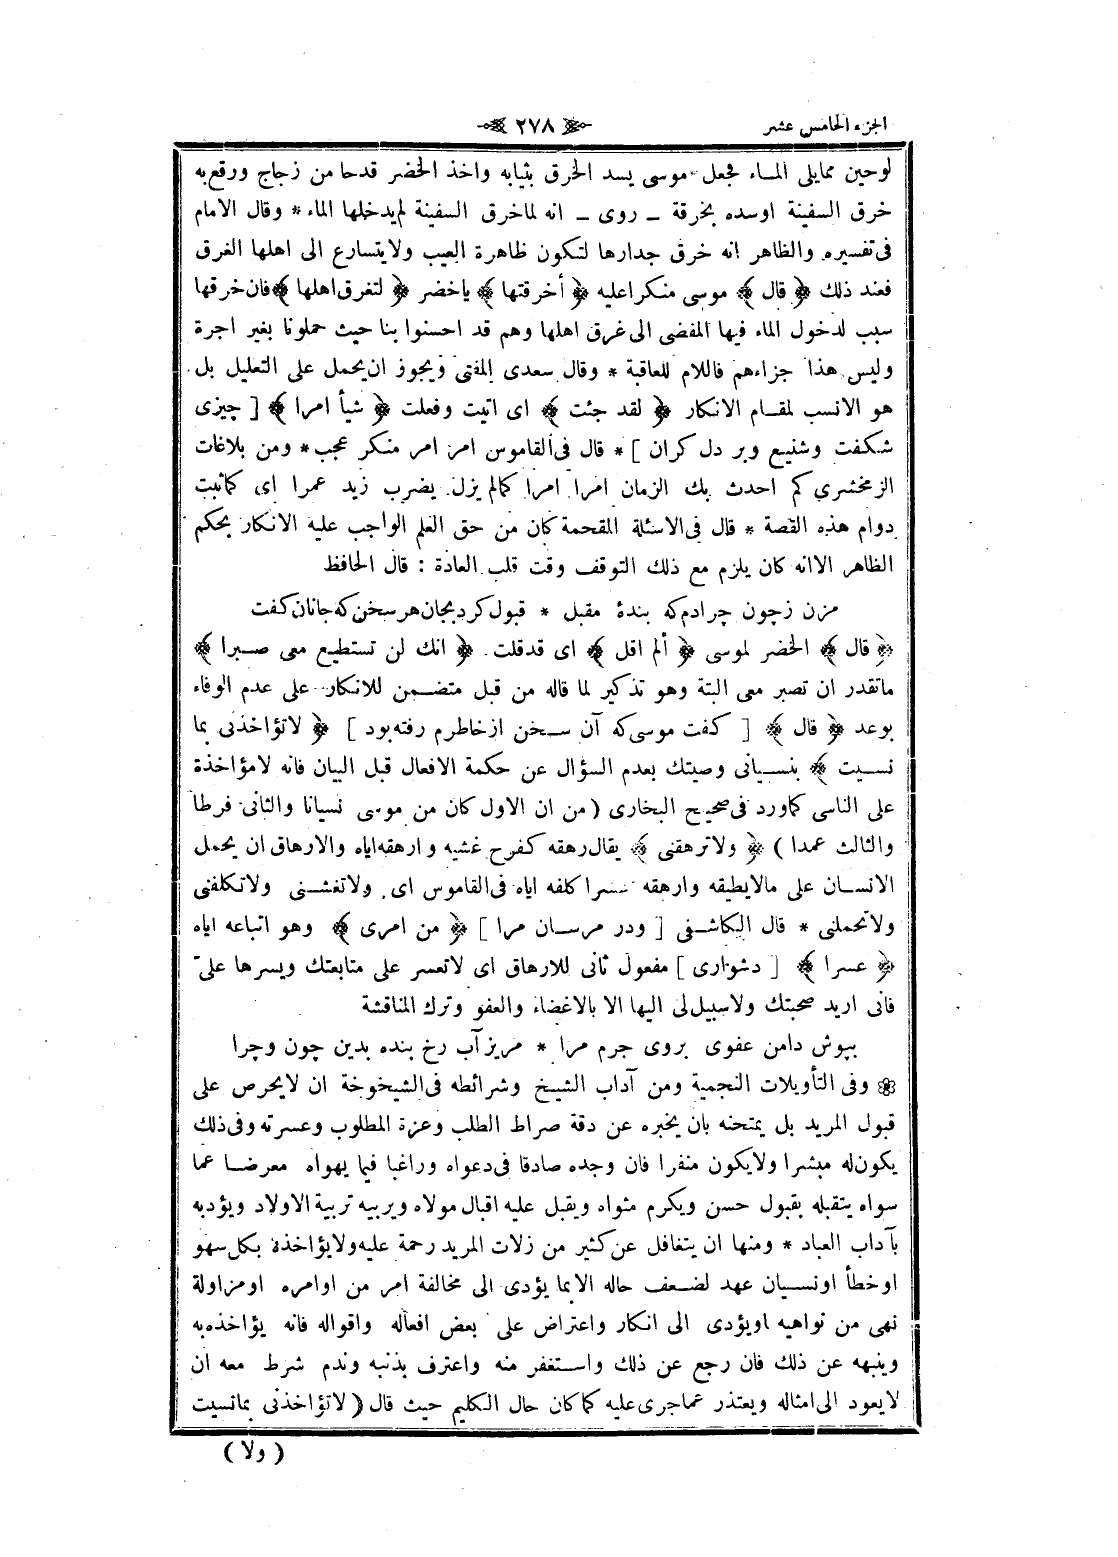 الجزء الخامس عشر
٢٧٨
لوحين ممايلى الماء فجعل موسى يسد الخرق بثيابه واخذ الخضر قدحا من زجاج ورقع به
خرق السفينة اوسده بخرقة ـ روى ـ انه لماخرق السفينة لم يدخلها الماء * وقال الامام
فى تفسيره والظاهر انه خرق جدارها لتكون ظاهرة العيب ولايتسارع الى اهلها الغرق
فعند ذلك ﴿ قال ﴾ موسى منكرا عليه ﴿ أخرقتها ﴾ ياخضر ﴿ لتغرق اهلها ﴾ فان خرقها
سبب لدخول الماء فيها المفضى الى غرق اهلها وهم قد احسنوا بنا حيث حملونا بغير اجرة
وليس هذا جزاءهم فاللام للعاقبة * وقال سعدى المفتى ويجوز ان يحمل على التعليل بل
هو الانسب لمقام الانكار ﴿ لقد جئت ﴾ اى اتيت وفعلت ﴿ شيأ امرا ﴾ [ چيزى
شكفت وشنيع وبر دل كران ] * قال فى القاموس امر امر منكر عجب * ومن بلاغات
الزمخشرى كم احدث بك الزمان امرا امرا كمالم يزل يضرب زيد عمرا اى كماثبت
دوام هذه القصة * قال فى الاسئلة المقحمة كان من حق العلم الواجب عليه الانكار بحكم
الظاهر الاانه كان يلزم مع ذلك التوقف وقت قلب العادة : قال الحافظ
مزن زچون چرادم كه بندهٔ مقبل * قبول كرد بجان هر سخن كه جانان كفت
﴿ قال ﴾ الخضر لموسى ﴿ ألم اقل ﴾ اى قدقلت ﴿ انك لن تستطيع معى صبرا ﴾
ماتقدر ان تصبر معى البتة وهو تذكير لما قاله من قبل متضمن للانكار على عدم الوفاء
بوعد ﴿ قال ﴾ [ كفت موسى كه آن سخن ازخاطرم رفته بود ] ﴿ لاتؤاخذنى بما
نسيت ﴾ بنسيانى وصيتك بعدم السؤال عن حكمة الافعال قبل البيان فانه لامؤاخذة
على الناسى كماورد فى صحيح البخارى ( من ان الاول كان من موسى نسيانا والثانى فرطا
والثالث عمدا ) ﴿ ولاترهقنى ﴾ يقال رهقه كفرح غشيه وارهقه اياه والارهاق ان يحمل
الانسان على مالايطيقه وارهقه عسرا كلفه اياه فى القاموس اى ولاتغشنى ولاتكلفنى
ولاتحملنى * قال الكاشفى [ ودر مرسان مرا ] ﴿ من امرى ﴾ وهو اتباعه اياه
﴿ عسرا ﴾ [ دشوارى ] مفعول ثانى للارهاق اى لاتعسر على متابعتك ويسرها علىّ
فانى اريد صحبتك ولاسبيل لى اليها الا بالاغضاء والعفو وترك المناقشة
بپوش دامن عفوى بروى جرم مرا * مريز آب رخ بنده بدين چون وچرا
❀ وفى التأويلات النجمية ومن آداب الشيخ وشرائطه فى الشيخوخة ان لايحرص على
قبول المريد بل يمتحنه بان يخبره عن دقة صراط الطلب وعزة المطلوب وعسرته وفى ذلك
يكون له مبشرا ولايكون منفرا فان وجده صادقا فى دعواه وراغبا فيما يهواه معرضا عما
سواه يتقبله بقبول حسن ويكرم مثواه ويقبل عليه اقبال مولاه ويربيه تربية الاولاد ويؤدبه
بآداب العباد * ومنها ان يتغافل عن كثير من زلات المريد رحمة عليه ولايؤاخذه بكل سهو
اوخطأ اونسيان عهد لضعف حاله الابما يؤدى الى مخالفة امر من اوامره اومزاولة
نهى من نواهيه اويؤدى الى انكار واعتراض على بعض افعاله واقواله فانه يؤاخذه به
وينبهه عن ذلك فان رجع عن ذلك واستغفر منه واعترف بذنبه وندم شرط معه ان
لايعود الى امثاله ويعتذر عماجرى عليه كما كان حال الكليم حيث قال ( لاتؤاخذنى بمانسيت
( ولا )